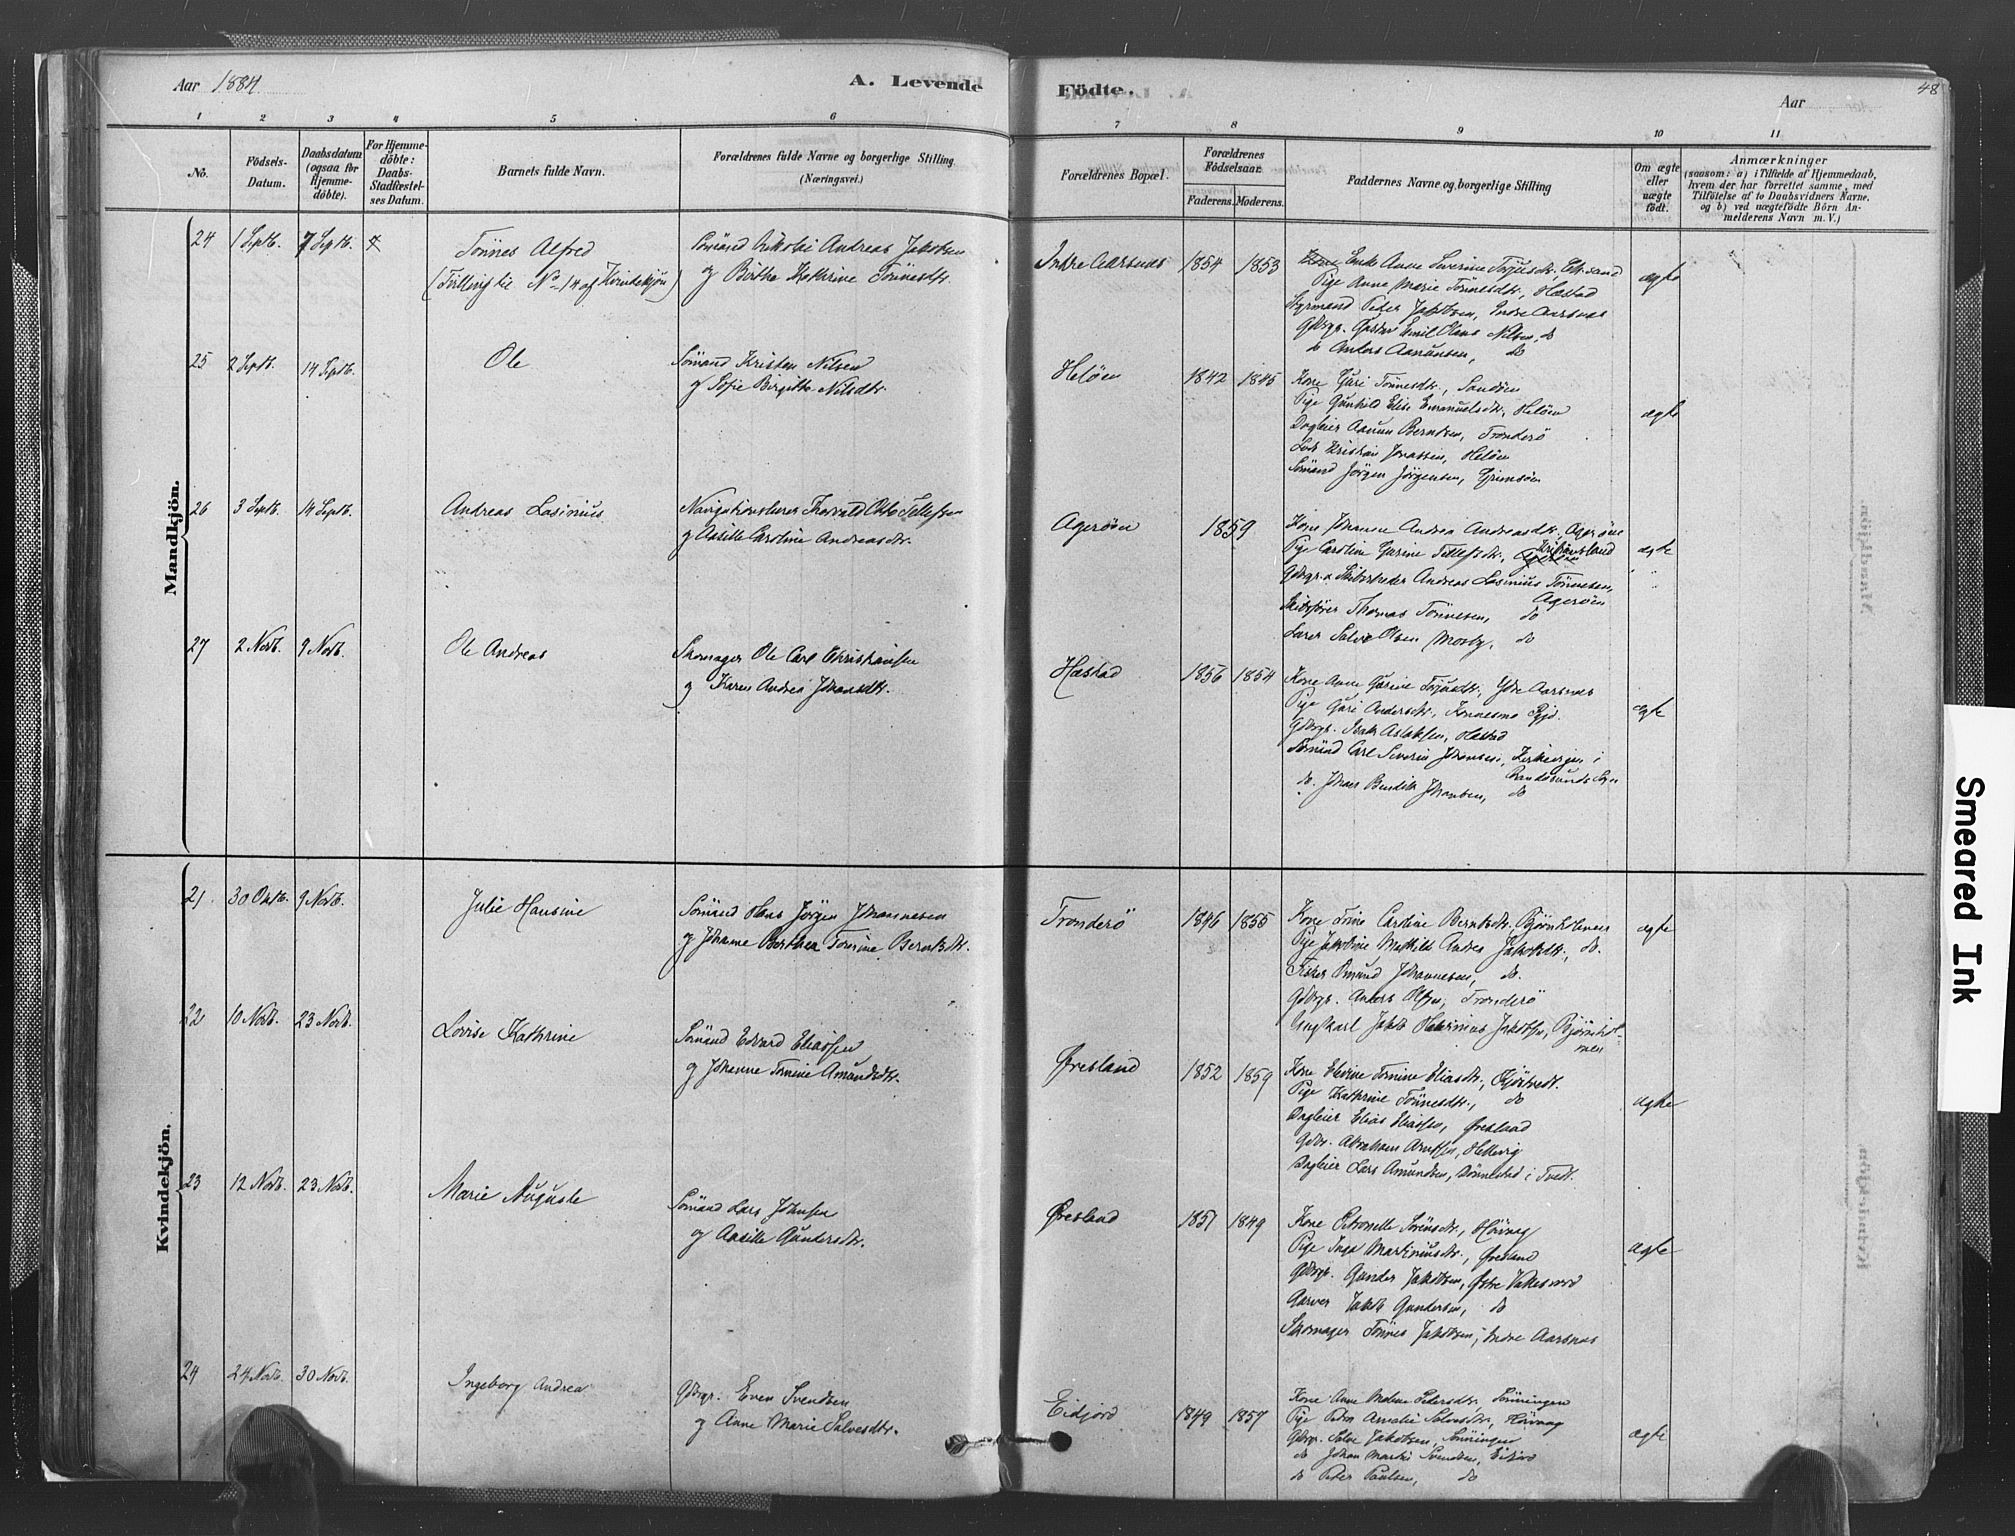 Aar 1884.
A. Levende
Födte.
Aar
48
1 2 3 4 5 6 7 8 9 10 11
No.
Födsels-
Datum.
Daabsdatum
(ogsaa for
Hjemme-
döbte).
For Hjemme-
döbte:
Daabs-
Stadfæstel-
ses Datum.
Barnets fulde Navn.
Forældrenes fulde Navne og borgerlige Stilling
(Næringsvei.)
Forældrenes Bopæl.
Forældrenes
Födselsaar.
Faderens. Moderens.
Faddernes Navne og borgerlige Stilling
Om ægte
eller
uægte
födt.
Anmærkninger
(saasom: a) i Tilfælde af Hjemmedaab,
hvem der har forrettet samme, med
Tilföielse af to Daabsvidners Navne.
og b) ved uægtefödte Börn An-
melderens Navn m. V.)
Mandkjön.
24 1 Septb. 7 Septb.
Tönnes Alfred
(Tvilling til No 14 af Kvindekjön)
Sömand Nikolai Andreas Jakobsen
og Birthe Kathrine Tönnesdtr.
Indre Aarsnes 1854 1853
Enke Anne Severine Terjusdtr.,
Pige Anne Marie Tönnesdtr., Hæstad
Styrmand Peder Jakobsen, Indre Aarsnes
Gdbrgr. Gustav Emil Olaus Nilsen, do
do Anders Aanunsen, do
ægte
25 2 Septb. 14 Septb.
Ole
Sömand Kristen Nilsen
og Sofie Birgitte Nilsdtr.
Helöen 1842 1845
Kone Guri Tönnesdtr., Sandöen
Pige Gunhild Elise Emanuelsdtr., Helöen
Dagleier Aanun Berntsen, Tronderö
Lods Kristian Jonassen, Helöen
Sömand Jörgen Jörgensen, Grimsöen
ægte
26 3 Septb. 14 Septb.
Andreas Lasinius
Navigationslærer Thorvald Otto Tellefsen
og Aasille Caroline Andreasdtr.
Agerøen 1859
Kone Johanne Andrea Andreasdtr., Agerøen
Pige Caroline Gurine Tellefsdtr., Kristiansand
Gdbrgr. & Skibsrheder Andreas Lasinius Tönnesen,
Agerøen
Skibsfører Thomas Tönnesen, do
Lærer Salve Olsen Mosby, do
ægte
27 2 Novb. 9 Novb.
Ole Andreas
Skomager Ole Carl Christiansen
og Karen Andrea Johansdtr.
Hæstad 1856 1854
Kone Anne Gurine Terjusdtr., Ydre Aarsnes
Pige Guri Andersdtr.,
Gdbrgr. Isak Aslaksen, Hæstad
Sömand Carl Severin Johansen, Kirkeveien i
Randesunds Sogn
do. Johan Bendik Johansen, do
ægte
Kvindekjön.
21 30 Oktb. 9 Novb.
Julie Hansine
Sömand Hans Jörgen Johannesen
og Johanne Berthea Tomine Berntsdtr.
Tronderö 1846 1855
Kone Trine Caroline Berntsdtr. Bjørnholmen
Pige Jakobine Mathilde Andrea Jakobsdtr., do.
Fisker Omund Johannesen, do.
Gdbrgr. Anders Olsen, Tronderö
Ungkarl Jakob Jakobsen, Bjørnhol-
men
ægte
22 10 Novb. 23 Novb.
Lovise Kathrine
Sömand Edvard Eliassen
og Johanne Tomine Amundsdtr.
Øresland 1852 1859
Kone Elevine Tomine Eliasdtr.,
Pige Kathrine Tönnesdtr., do
Dagleier Elias Eliassen, Øresland
Gdbr. Abraham Arntsen, Hellevig
Dagleier Lars Amundsen, Dønnestad i Tvedt.
ægte
23 12 Novb. 23 Novb.
Marie Auguste
Sömand Lars Johnsen
og Aasille Gundersdtr.
Øresland 1851 1849
Kone Petronelle Sörensdtr., Høivaag
Pige Inga Martiniusdtr., Øresland
Gdbrgr. Gunder Jakobsen, Østre Vallesværd
Garver Jakob Gundersen, do
Skomager Tönnes Jakobsen, Indre Aarsnes
ægte
24 24 Novb. 30 Novb.
Ingeborg Andrea
Gdbrgr. Even Svendsen
og Anne Marie Salvesdtr.
Eidjord 1849 1857
Kone Anne Malene Pedersdtr.,
Pige Petra Amalie Salvesdtr., Høivaag
Gdbrgr. Salve Jakobsen,
do Johan Martin Svendsen, Eidjord
do Peter Paulsen, do
ægte
Smeared Ink